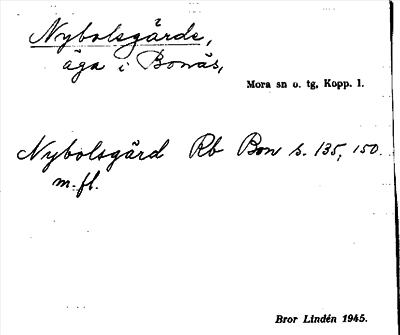 Nybolsgårde,
äga i Bonäs,
Mora sn o. tg, Kopp. l.
Nybolsgård Rb Bon s. 135, 150
m. fl.
Bror Lindén 1945.